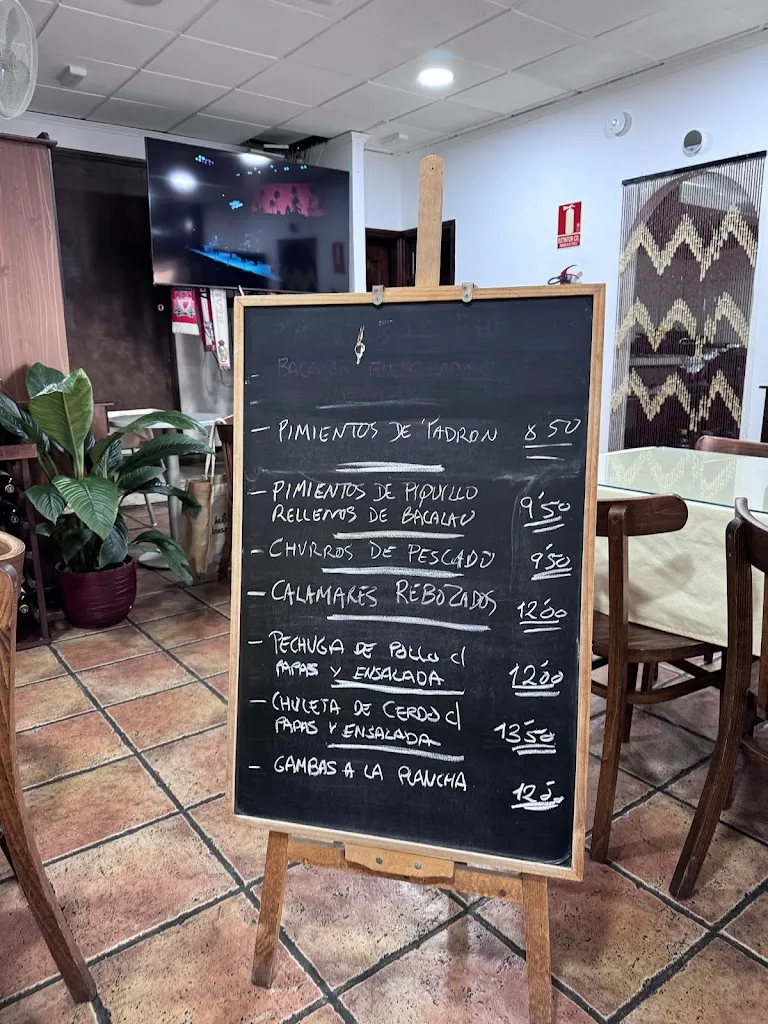 EXTINTOR
- PIMIENTOS DE PADRON 8'50
- PIMIENTOS DE PIQUILLO
RELLENOS DE BACALAO 9'50
- CHURROS DE PESCADO 9'50
- CALAMARES REBOZADOS 12'00
- PECHUGA DE POLLO c/
PAPAS Y ENSALADA 12'00
- CHULETA DE CERDO c/
PAPAS Y ENSALADA 13'50
- GAMBAS A LA PLANCHA